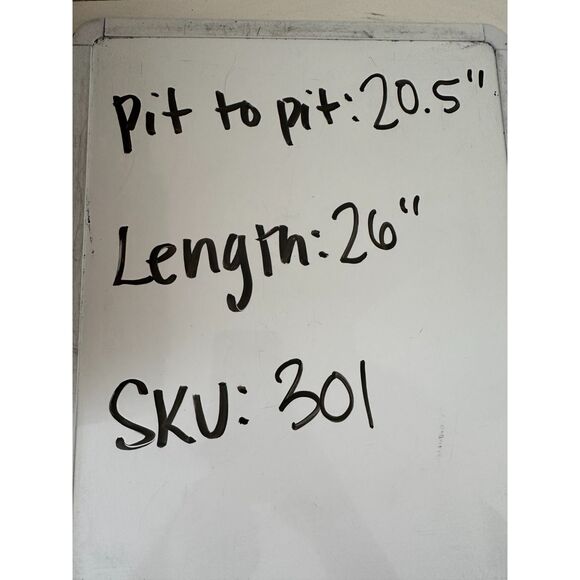 pit to pit: 20.5"
Length: 26"
SKU: 301